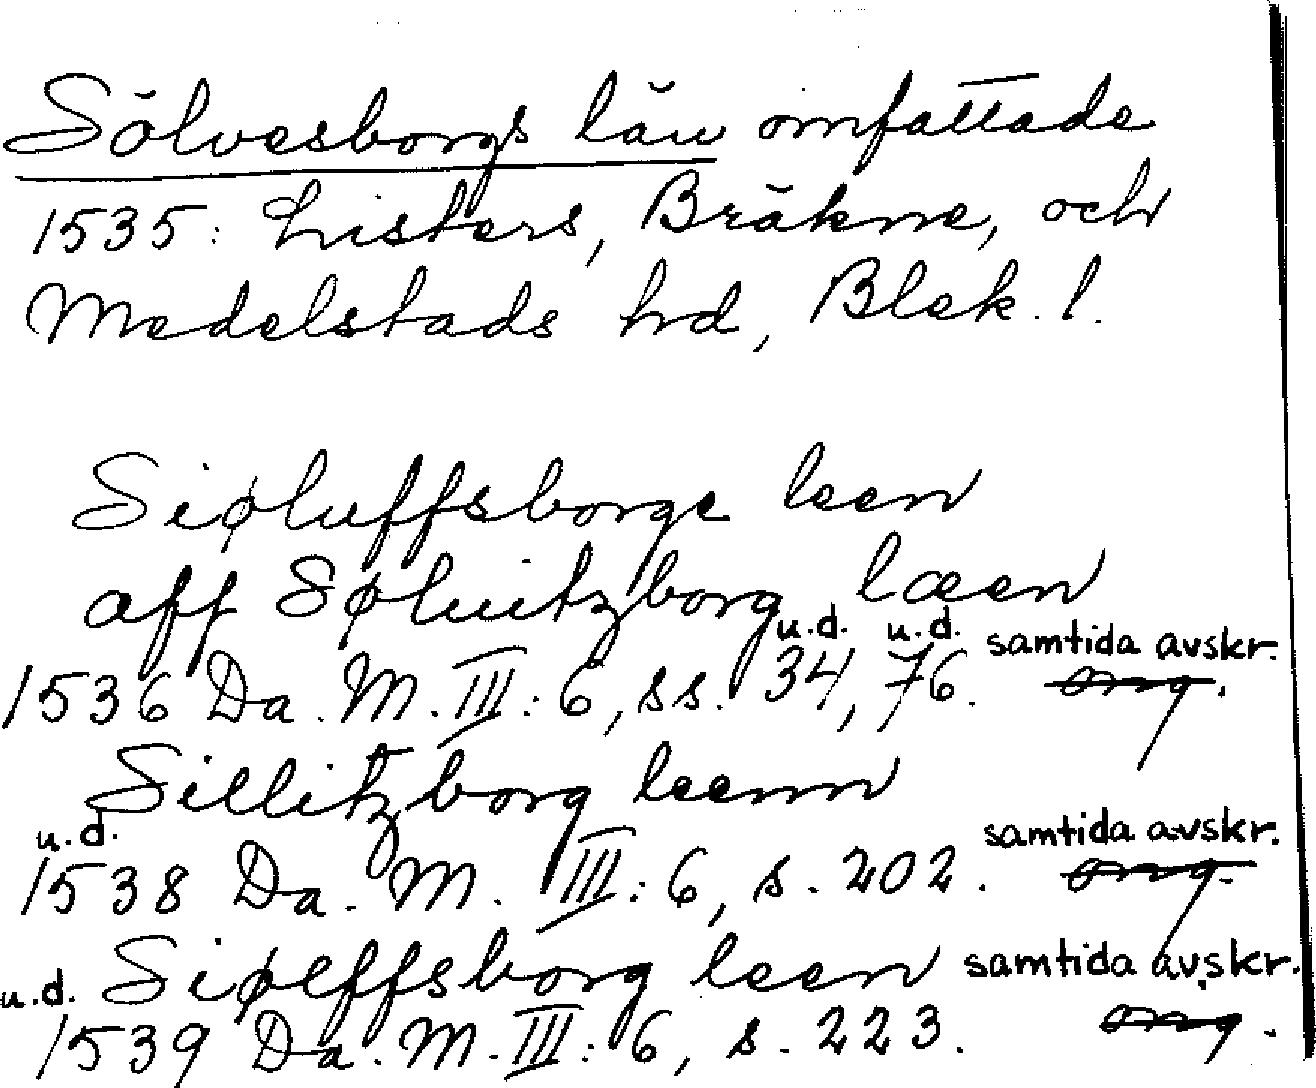 Sölvesborgs län omfattade
1535: Listers, Bräkne, och
Medelstads hd, Blek. l.
Siøluffsborge leen
aff Søluitzborg læen
u.d. u.d. samtida avskr.
1536 Da. M. III: 6, ss. 34, 76. orig.
Sillitzborg leenn
u.d. samtida avskr.
1538 Da. M. III: 6, s. 202. orig.
u.d. Siøleffsborg leen samtida avskr.
1539 Da. M. III: 6, s. 223. orig.